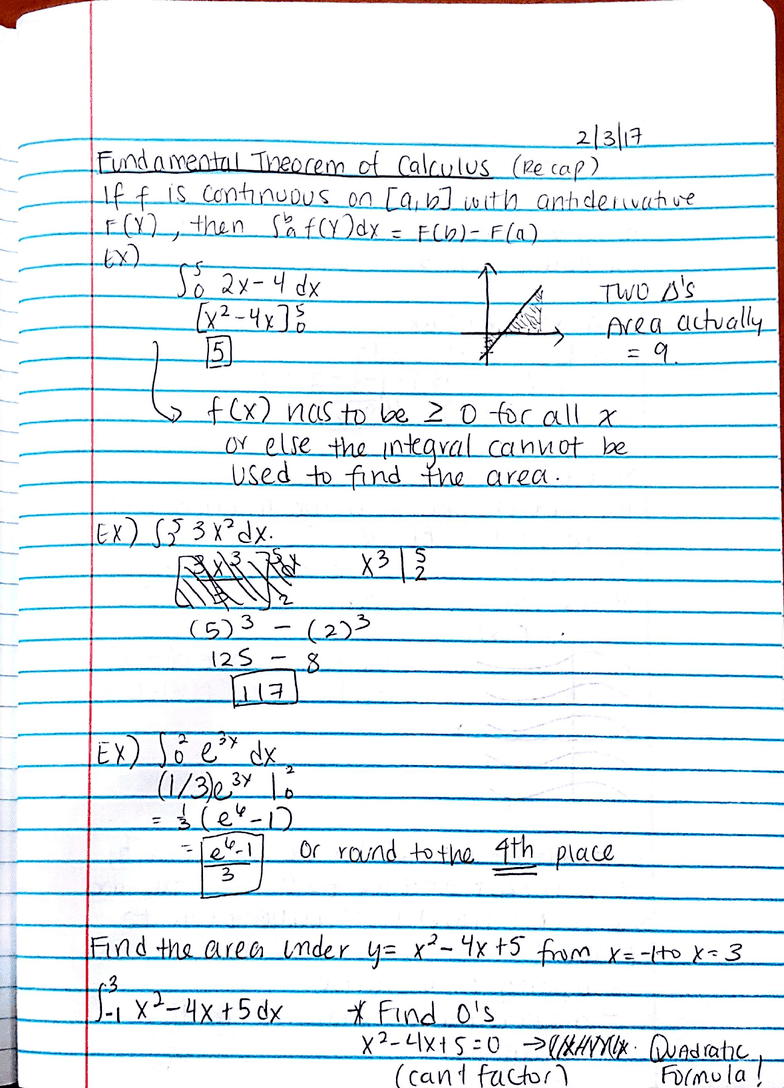 2/3/17
Fundamental Theorem of Calculus (Recap)
If f is continuous on [a,b] with antiderivative
F(x), then ∫ₐᵇ f(x)dx = F(b) - F(a)
Ex)
∫₀⁵ 2x-4 dx
[x²-4x]₀⁵
5
TWO Δ's
Area actually
= 9.
f(x) has to be ≥ 0 for all x
or else the integral cannot be
used to find the area.
EX) ∫₂⁵ 3x² dx.
x³ |₂⁵
(5)³ - (2)³
125 - 8
117
EX) ∫₀² e³ˣ dx
(1/3)e³ˣ |₀²
= 1/3 (e⁶-1)
= e⁶-1/3 or round to the 4th place
Find the area under y= x²-4x+5 from x=-1 to x=3
∫₋₁³ x²-4x+5 dx * Find 0's
x²-4x+5=0 → Quadratic
(can't factor) Formula!